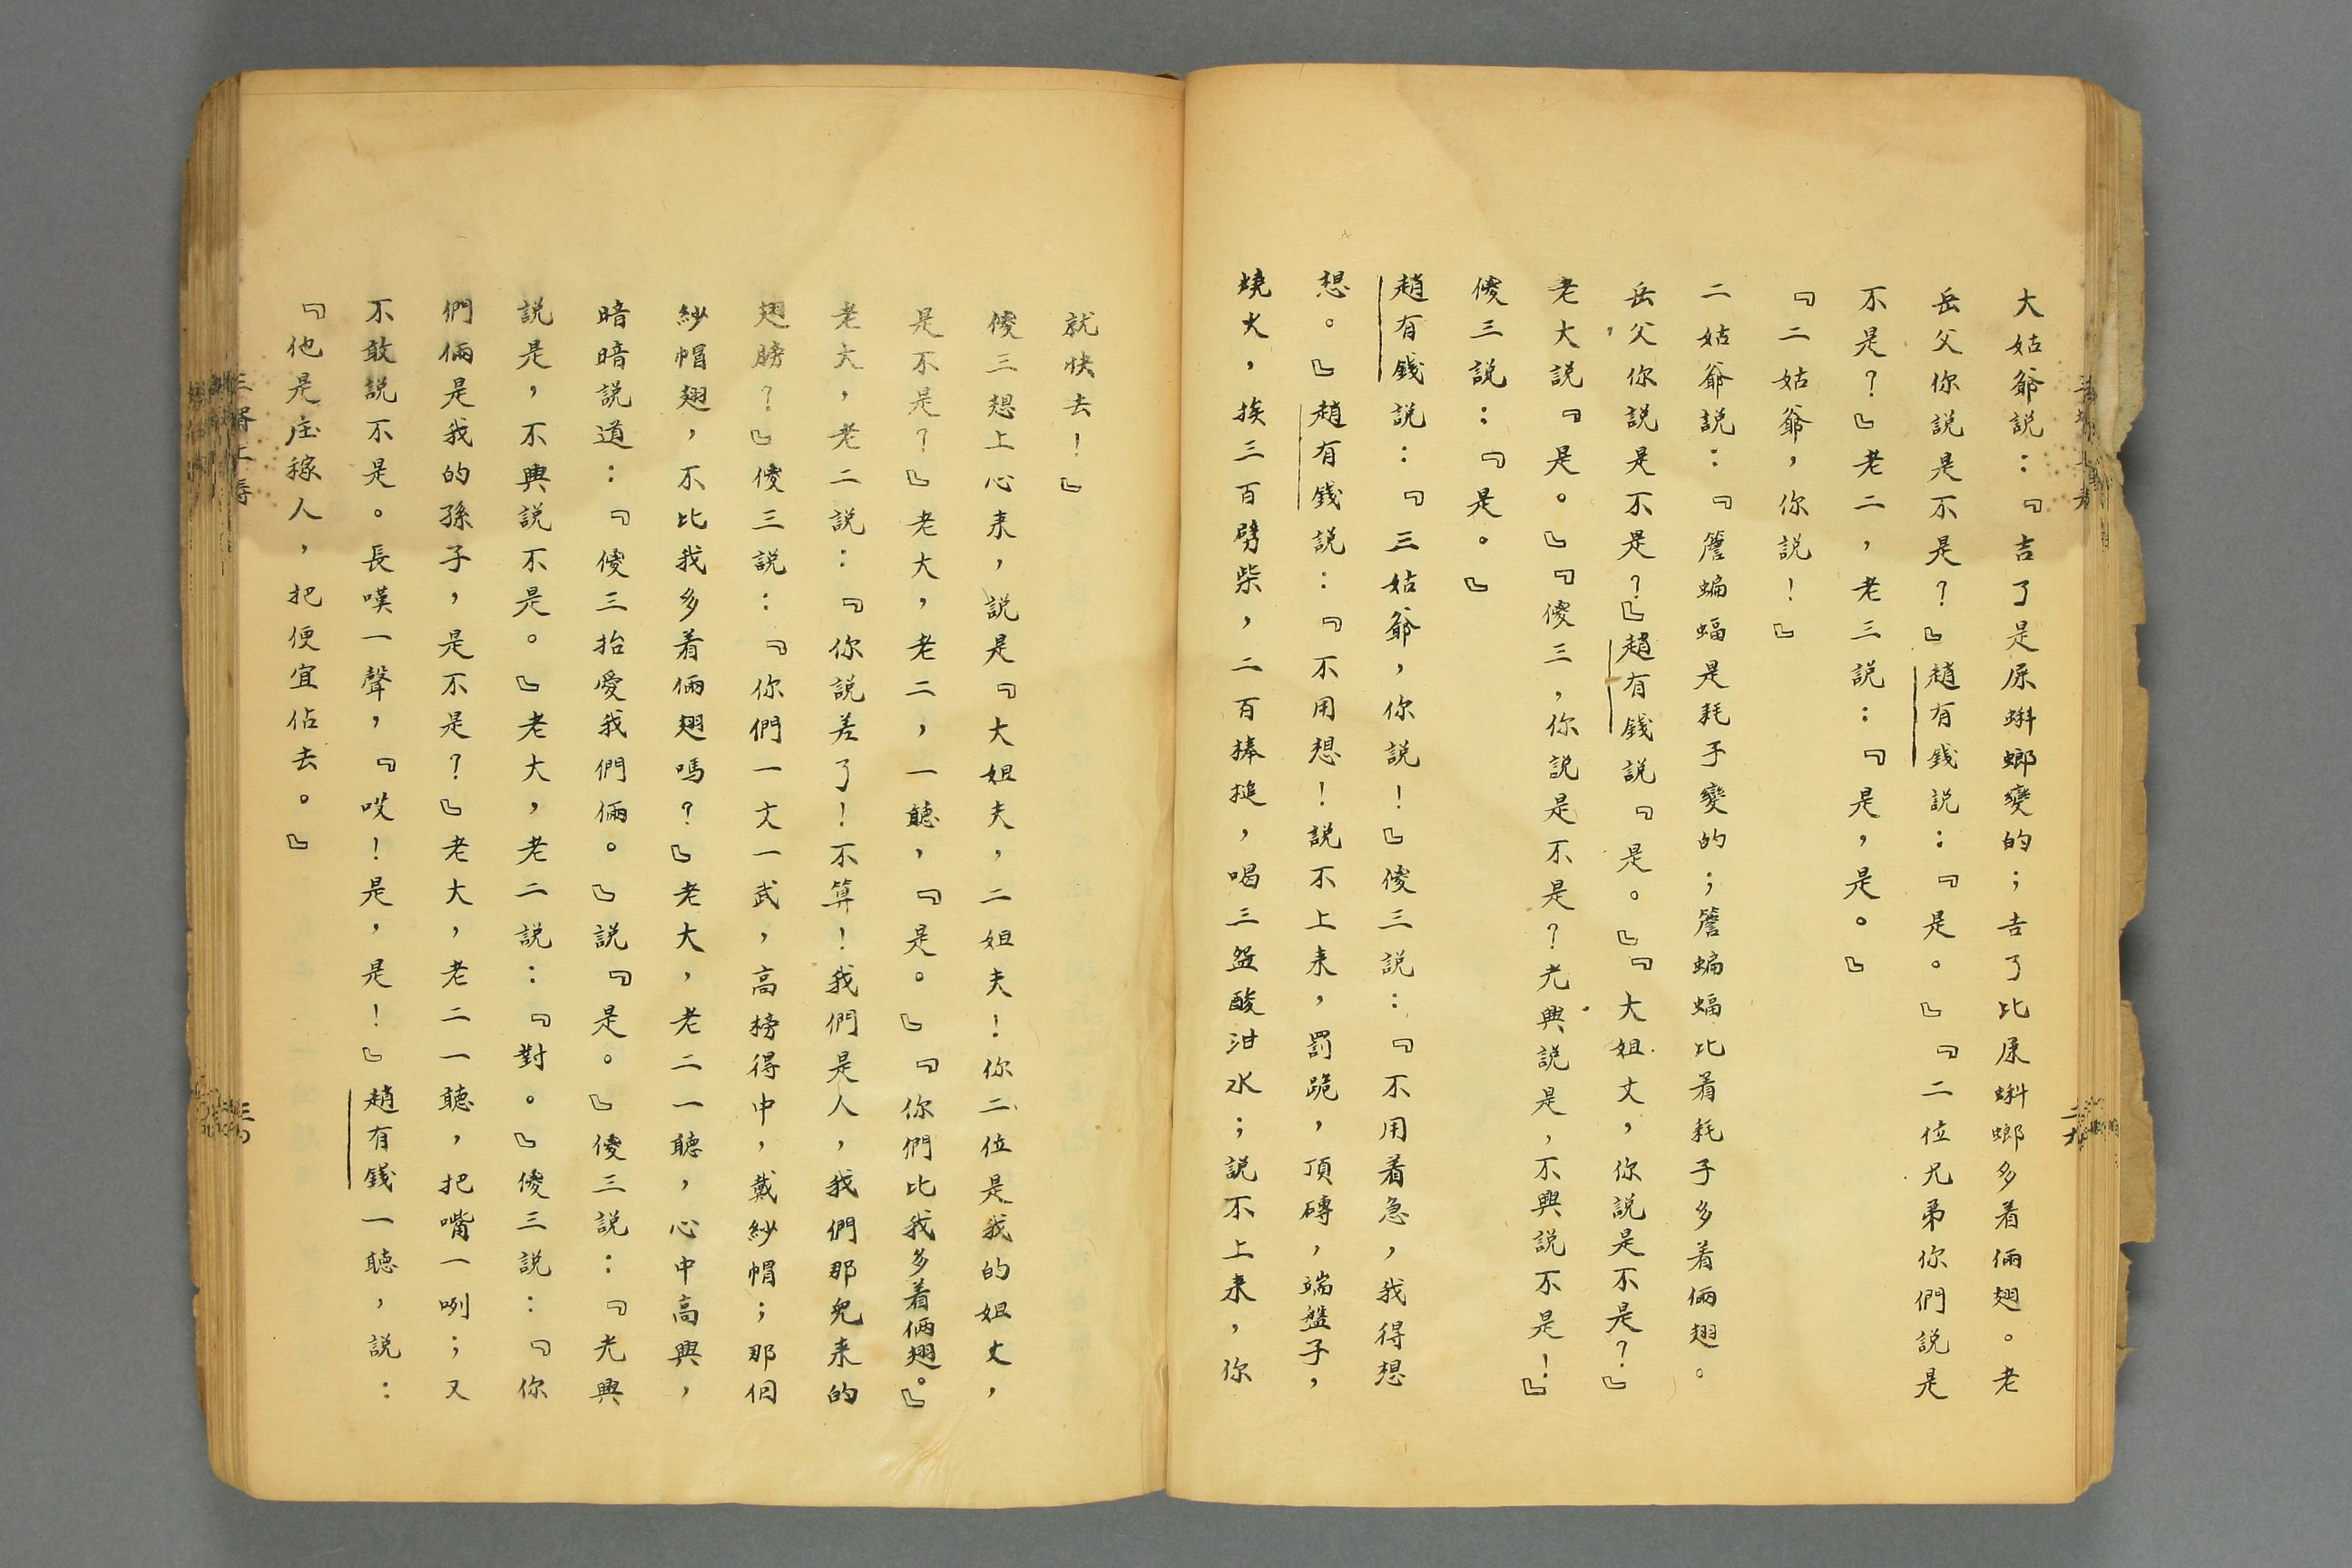 大姑爺說：『吉了是屎蝌螂變的；吉了比屎蝌螂多着倆翅。老
岳父你說是不是？』趙有錢說：『是。』『二位兄弟你們說是
不是？』老二，老三說：『是，是。』
『二姑爺，你說！』
二姑爺說：『簷蝙蝠是耗子變的；簷蝙蝠比着耗子多着倆翅。
岳父你說是不是？』趙有錢說『是。』『大姐丈，你說是不是？』
老大說『是。』『傻三，你說是不是？光興說是，不興說不是！』
傻三說：『是。』
趙有錢說：『三姑爺，你說！』傻三說：『不用着急，我得想
想。』趙有錢說：『不用想！說不上来，罰跪，頂磚，端盤子，
燒火，挨三百劈柴，二百捧搥，喝三盌酸泔水；說不上来，你
二九
就快去！』
傻三想上心来，說是『大姐夫，二姐夫！你二位是我的姐丈，
是不是？』老大，老二，一聽，『是。』『你們比我多着倆翅。』
老大，老二說：『你說差了！不算！我們是人，我們那兒来的
翅膀？』傻三說：『你們一文一武，高榜得中，戴紗帽；那個
紗帽翅，不比我多着倆翅嗎？』老大，老二一聽，心中高興，
暗暗說道：『傻三抬愛我們倆。』說『是。』傻三說：『光興
說是，不興說不是。』老大，老二說：『對。』傻三說：『你
們倆是我的孫子，是不是？』老大，老二一聽，把嘴一咧；又
不敢說不是。長嘆一聲，『哎！是，是！』趙有錢一聽，說：
『他是庄稼人，把便宜佔去。』
三壻上壽
三〇